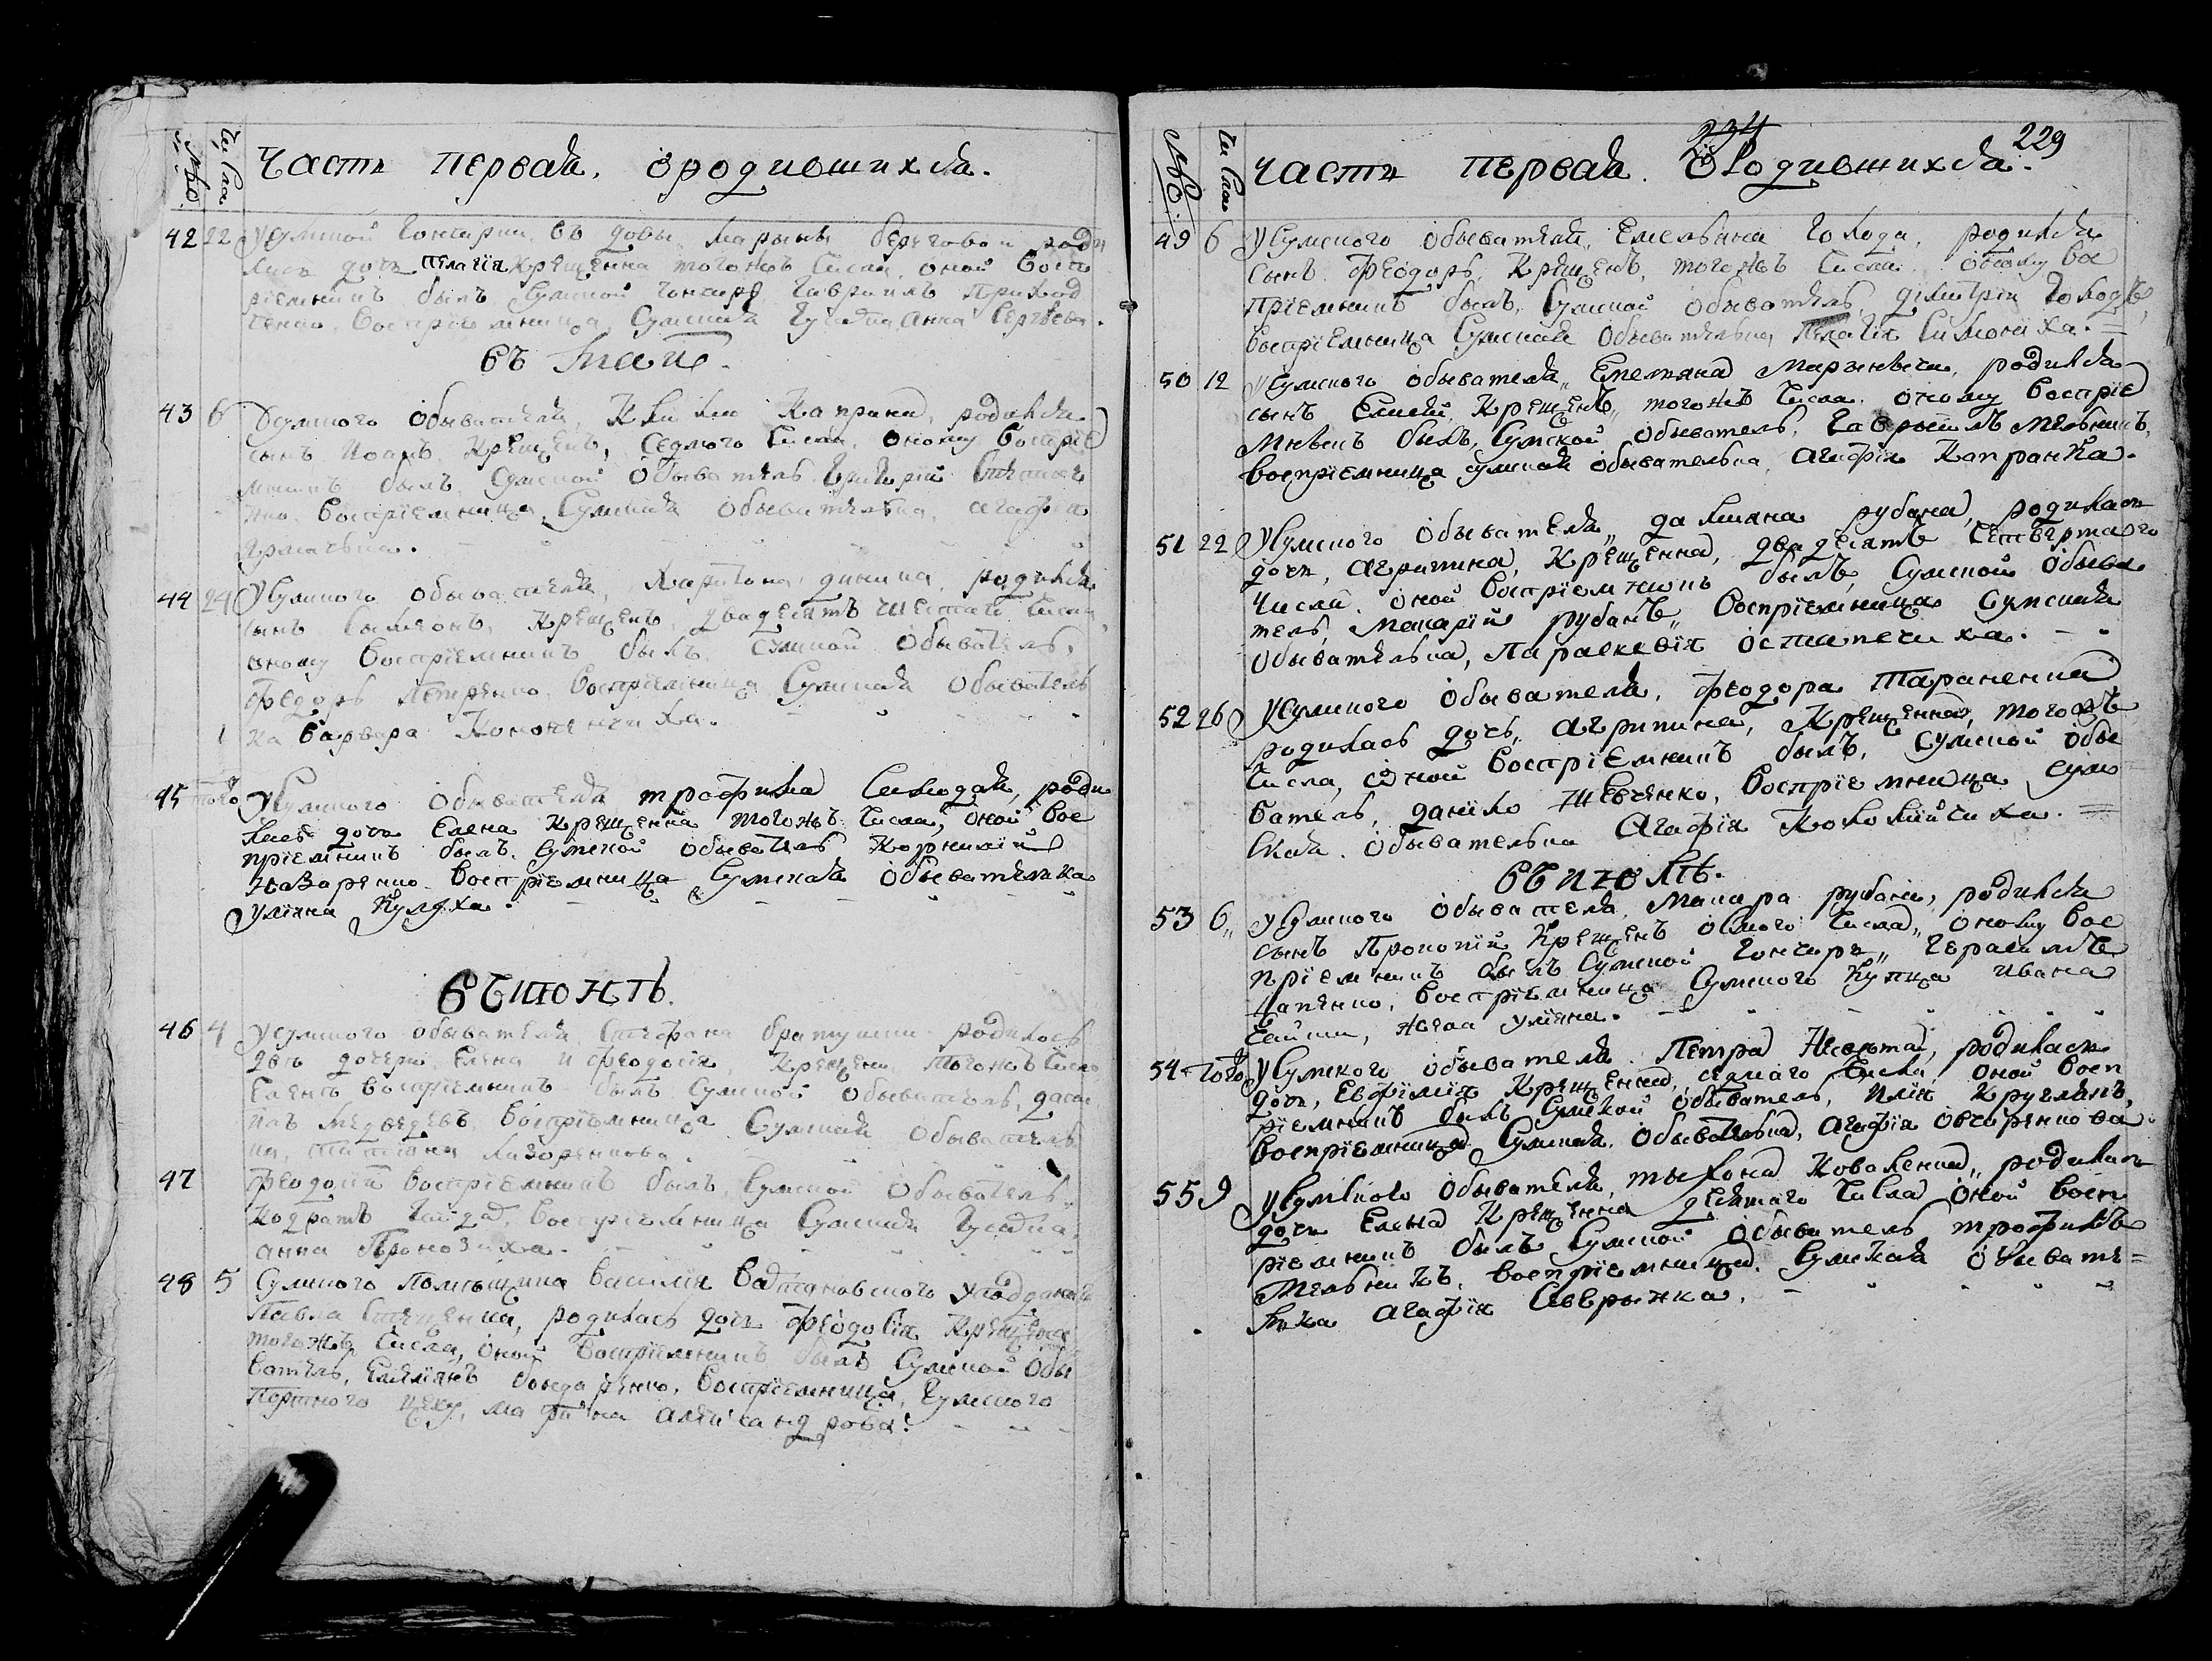 №во.
Числа
Часть первая. о родившихся.
42 22 У сумской гончарки вдовы Марыны береговои роди
лась дочь Пелагія Крещенна тогожъ числа, оной воспр
ріемникъ былъ Сумской гончаръ Гавріилъ Приход
ченко, воспріемница Сумская Анна Сергѣева.
въ маіи.
43 6 У сумского обывателя, Клима Капрана, родился
сынъ Іоанъ Крещенъ, седмого числа, оному воспріе
мникъ былъ Сумской обыватель Григорій
воспріемница, Сумская обывателька, агафия
Ярмачька.
44 24 У Сумского обывателя, Харитона дикина, родился
сынъ Сымеонъ, Крещенъ двадесятъ шестаго числа,
оному воспріемникъ былъ Сумской обыватель,
Федоръ Петренко, воспріемница Сумская обыватель
ка Варвара Кононенчиха.
45 того У Сумского обывателя трофима Синодая, роди
лась дочь Елена Крещенна тогожъ числа, оной вос
пріемникъ былъ Сумской обыватель Корнилій
Назаренко воспріемница Сумская обывателька
Уліяна Кулѣха.
въ июнѣ.
46 4 У сумского обывателя Стефана братушки родились
двѣ дочери Елена и Феодосія, Крещени тогожъ числа
Еленѣ воспріемникъ былъ Сумской обыватель,
Медведевъ, воспріемница Сумская обыватель
ка, Татіана Лазоренкова.
47 Феодосіи воспріемникъ былъ Сумской обыватель
Кодратъ Гайда, воспріемница Сумская
анна Пронозиха.
48 5 Сумского помѣщика Василія у подданого
Павла Степенка, родилась дочь Феодосія Крещенна
тогожъ числа, оной воспріемникъ былъ Сумской обы
ватель, Емелянъ бондаренко, воспріемница, Сумского
портного цеху, марфина александрова.
№во.
Числа
234
229
Часть первая. О Родившихся.
49 6 У Сумского обывателя, Емельяна Голода, родился
сынъ Феодоръ, Крещенъ, тогожъ числа. оному вос
пріемникъ былъ, Сумской обыватель, димитрій Голодъ,
воспріемница Сумская обывателька, Пелагія Симониха.
50 12 У Сумского обывателя, Емелiяна Марченка, родился
сынъ Елисѣй, Крещенъ, тогожъ числа. оному воспріе
мникъ былъ, Сумской обыватель, Гавріилъ Мѣльникъ,
воспріемница сумская обывателька, Агафія Капранка.
51 22 У Сумского обывателя, дамiяна рубана, родилась
дочь, Агрипина, Крещенна, двадесятъ четвертаго
числа. оной воспріемникъ былъ, Сумской обыва
тель, Макарій рубанъ, воспріемница Сумская
обывателька, Параскевія остапечиха.
52 26 У Сумского обывателя, Феодора Тараненка
родилась дочь, Агрипина, Крещенна, тогожъ
числа, оной воспріемникъ былъ, Сумской обы
ватель, данило Шевченко, воспріемница Сум
ская. обывателька Агафія Коломійчиха.
въ июлѣ.
53 6 У Сумского обывателя, Макара рубана, родился
сынъ Прокопій Крещенъ осмого числа, оному вос
пріемникъ былъ Сумской гончаръ, герасимъ
воспріемница Сумского купца ивана
жена уліяна.
54 того У Сумского обывателя. Петра родилась
дочь, Евфимія Крещенна, седмаго числа оной восп
ріемникъ былъ Сумской обыватель, Илія Кругликъ,
воспріемница Сумская. обывателька, агафія овчаренкова
55 9 У Сумского обывателя, тихона Коваленка, родилась
дочь Елена Крещенна десятаго числа оной восп
ріемникъ былъ Сумской обыватель трофимъ
Мельникъ. воспріемница. Сумская обывате
лька агафія Севрынка.